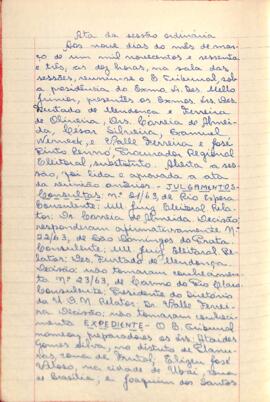 Ata da sessão ordinária
Aos nove dias do mês de mar-
ço de um mil novecentos e sessenta
e três, às dez horas, na sala das
sessões, reuniu-se o E. Tribunal, sob
a presidência do Exmo Sr. Des. Mello
Júnior, presentes os Exmos. Srs. Des.
Furtado de Mendonça e Ferreira
de Oliveira, Drs. Correia de Almei-
da, César Silveira,
Werneck, e Valle Ferreira e José
Pinto Renó Procurador Regional
Eleitoral, substituto. Aberta a ses-
são, foi lida e aprovada a ata
da reunião anterior. - JULGAMENTOS-
Consultas; nº 21/63, de Rio Espera
Consulente: MM Juiz Eleitoral. Rela-
tor: Dr. Correia de Almeida. Decisão:
responderam afirmativamente. Nº
22/63, de São Domingos do Prata.
Consulente: MM. Juiz Eleitoral. Re-
lator: Des. Furtado de Mendonça.
Decisão: não tomaram conhecimen-
to. Nº 23/63, de Carmo do Rio Claro
Consulente: Presidente do Diretório
da U.D.N. Relator: Dr. Valle Ferrei-
ra. Decisão: não tomaram conheci-
mento. EXPEDIENTE- O E. Tribunal
nomeou preparadores os srs:
Gomes Silva, no distrito de Planu-
ras, zona de Frutal; José
Veloso, na cidade de Ubaí, zona
de Brasília, e Joaquim dos Santos